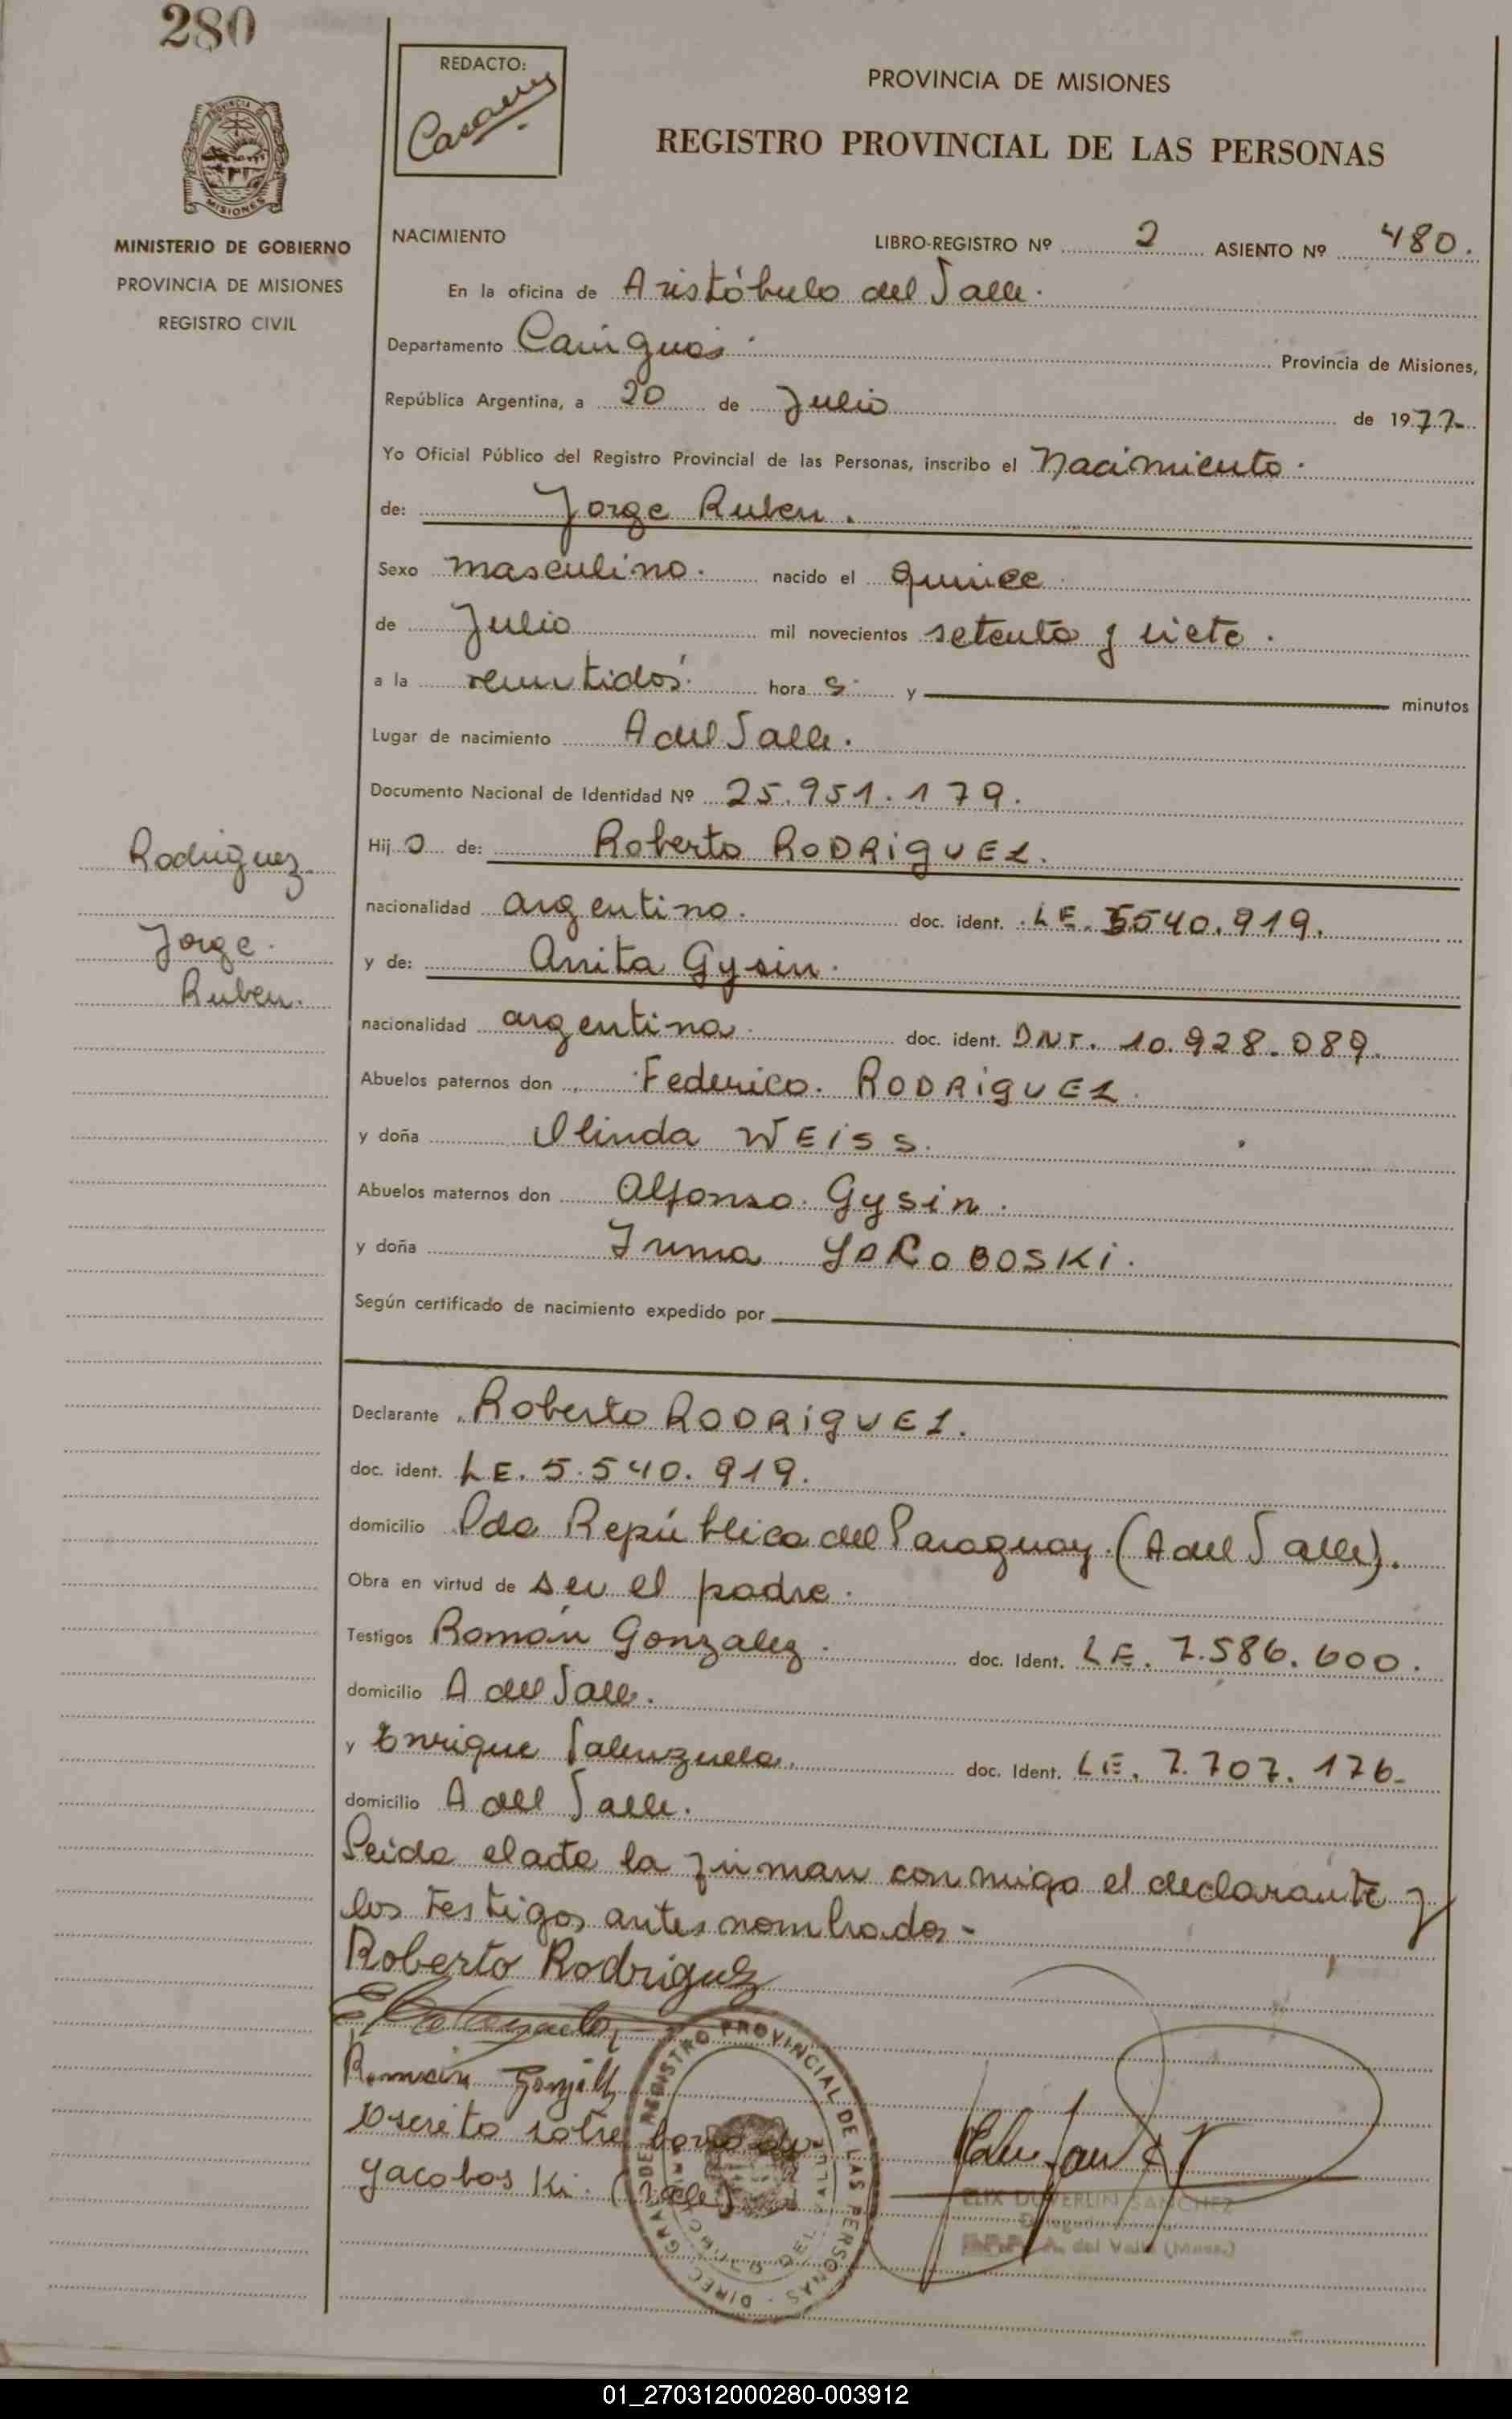 280
REDACTO:
PROVINCIA DE MISIONES
REGISTRO PROVINCIAL DE LAS PERSONAS
PROVINCIA
MISIONES
MINISTERIO DE GOBIERNO
PROVINCIA DE MISIONES
REGISTRO CIVIL
NACIMIENTO
LIBRO-REGISTRO Nº 2 ASIENTO Nº 480.
En la oficina de Aristóbulo del Valle.
Departamento Cainguás. Provincia de Misiones,
República Argentina, a 20 de Julio de 1977.-
Yo Oficial Público del Registro Provincial de las Personas, inscribo el Nacimiento.
de: Jorge Ruben.
Sexo masculino. nacido el quince.
de Julio mil novecientos setenta y siete.
a la veintidos. hora s y minutos
Lugar de nacimiento A del Valle.
Documento Nacional de Identidad Nº 25.951.179.
Rodriguez.
Jorge.
Ruben.
Hij o de: Roberto RODRiguEZ.
nacionalidad argentino. doc. ident. LE. 5540.919.
y de: Anita Gysin.
nacionalidad argentina. doc. ident. DNI. 10.928.089.
Abuelos paternos don Federico. RODRiguEZ.
y doña Olinda WEiss.
Abuelos maternos don Alfonso Gysin.
y doña Irma YACOBOSKi.
Según certificado de nacimiento expedido por
Declarante Roberto RODRiguEZ.
doc. ident. LE. 5.540.919.
domicilio Pdo República del Paraguay. (A del Valle).
Obra en virtud de ser el padre.
Testigos Román Gonzalez. doc. Ident. LE. 7.586.600.
domicilio A del Valle.
y Enrique Valenzuela. doc. Ident. LE. 7.707.176-
domicilio A del Valle.
Leida el acta la firman conmigo el declarante y
los testigos antes nombrados-
Roberto Rodriguez
Escrito sobre borrado
Yacoboski. (Vale)
REGISTRO PROVINCIAL DE LAS PERSONAS - DIREC. GRAL. DEL
ELIX DUVERLIN SANCHEZ
A. del Valle (Mnes.)
01_270312000280-003912